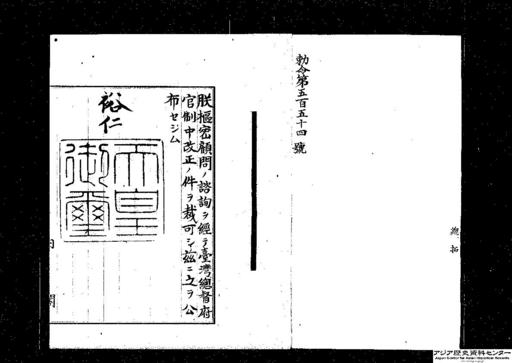 勅令第五百五十四號
總拓
朕樞密顧問ノ諮詢ヲ經テ臺灣總督府
官制中改正ノ件ヲ裁可シ茲ニ之ヲ公
布セシム
裕仁
天皇
御璽
内閣
アジア歴史資料センター
Japan Center for Asian Historical Records